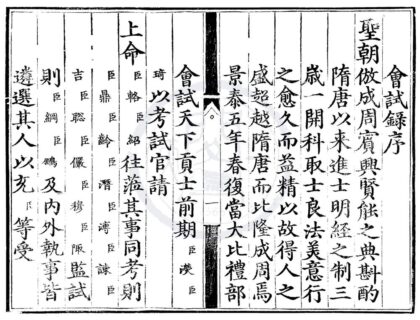 會試録序
聖朝倣成周賓興賢能之典斟酌
隋唐以來進士明經之制三
歲一開科取士良法美意行
之愈久而益精以故得人之
盛超越隋唐而比隆成周焉
景泰五年春復當大比禮部
會試天下貢士前期臣濙臣
琦以考試官請
上命臣輅臣紹往蒞其事同考則
臣鼎臣齡臣潛臣溥臣諫臣
吉臣聰臣儼臣穆臣監試
則臣綱臣鵬及內外執事皆
遴選其人以充臣等受